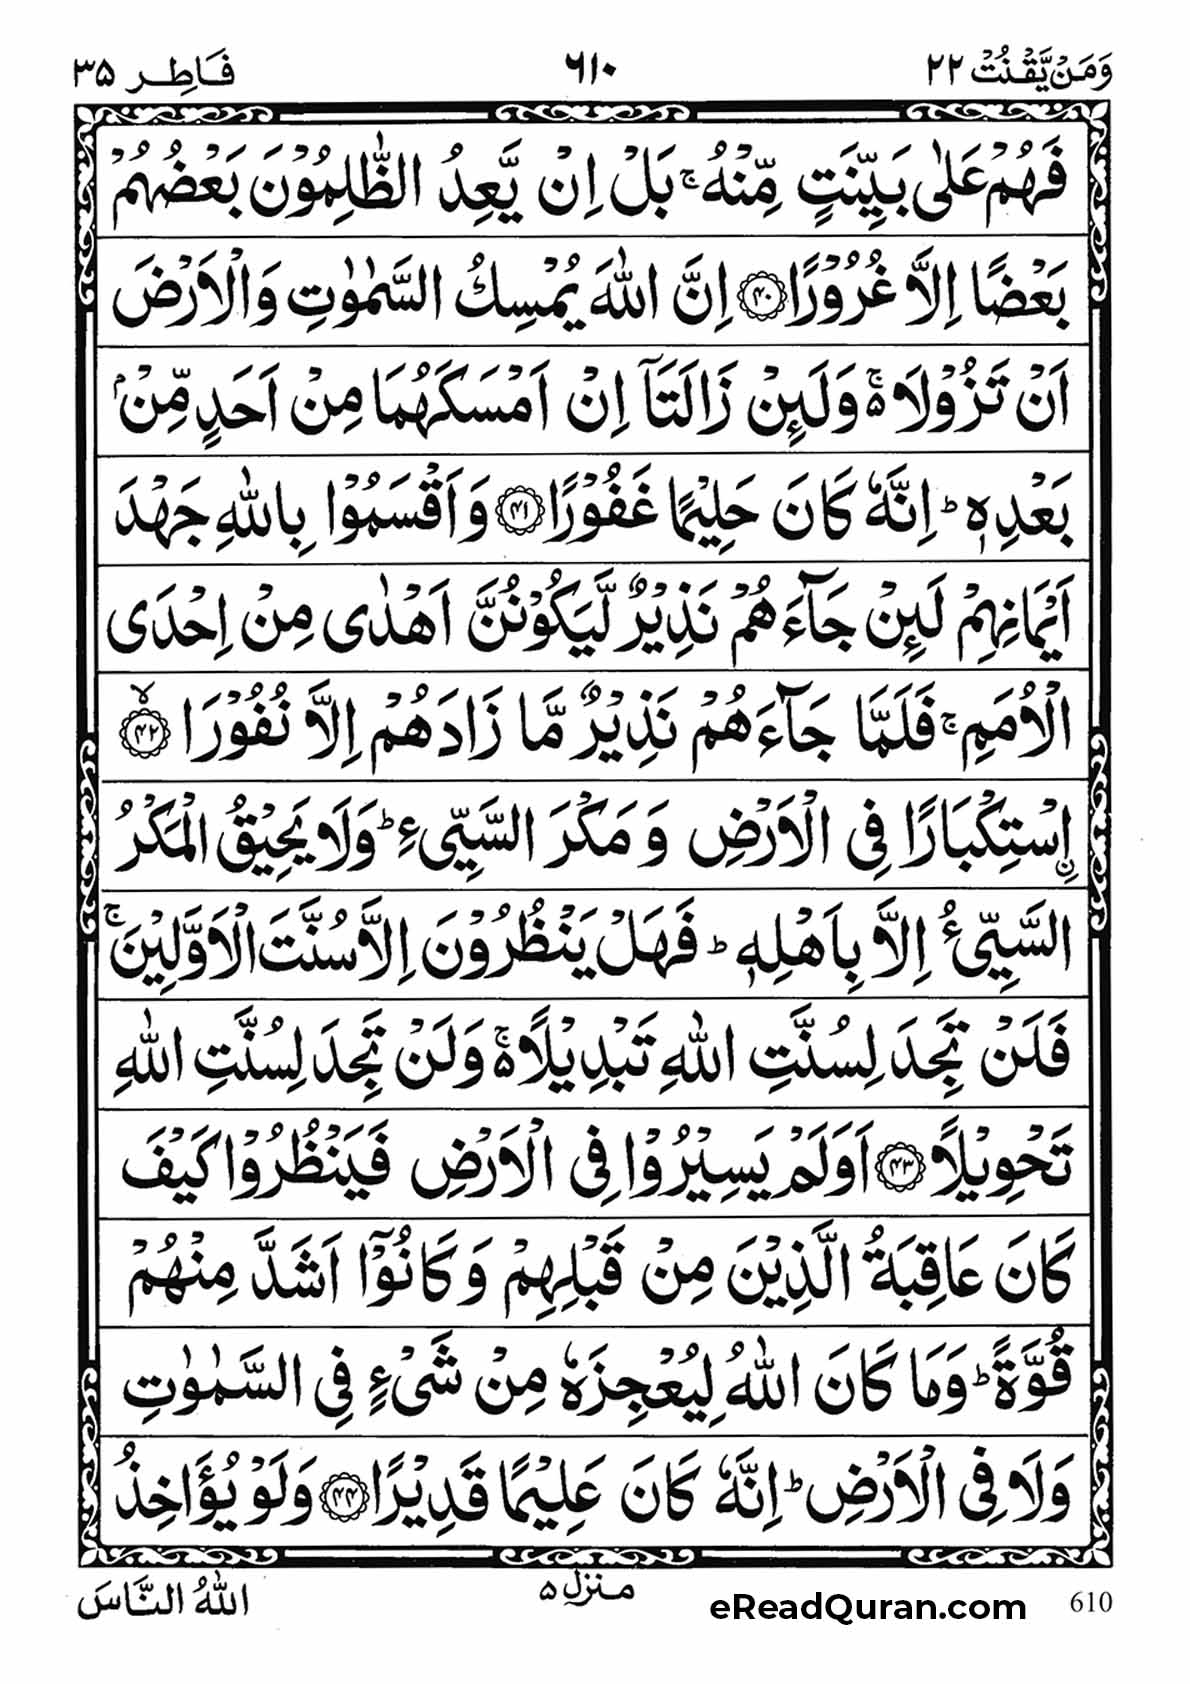 وَمَنْ يَّقْنُتْ ٢٢ ٦١٠ فَاطِر ٣٥
فَهُمْ عَلٰى بَيِّنَتٍ مِّنْهُ ۚ بَلْ اِنْ يَّعِدُ الظّٰلِمُوْنَ بَعْضُهُمْ
بَعْضًا اِلَّا غُرُوْرًا ﴿٤٠﴾ اِنَّ اللّٰهَ يُمْسِكُ السَّمٰوٰتِ وَالْاَرْضَ
اَنْ تَزُوْلَا ۬ۚ وَلَئِنْ زَالَتَاۤ اِنْ اَمْسَكَهُمَا مِنْ اَحَدٍ مِّنْۢ
بَعْدِهٖ ؕ اِنَّهٗ كَانَ حَلِيْمًا غَفُوْرًا ﴿٤١﴾ وَاَقْسَمُوْا بِاللّٰهِ جَهْدَ
اَيْمَانِهِمْ لَئِنْ جَآءَهُمْ نَذِيْرٌ لَّيَكُوْنُنَّ اَهْدٰى مِنْ اِحْدَى
الْاُمَمِ ۚ فَلَمَّا جَآءَهُمْ نَذِيْرٌ مَّا زَادَهُمْ اِلَّا نُفُوْرًا ﴿٤٢﴾ۙ
اۨسْتِكْبَارًا فِى الْاَرْضِ وَمَكْرَ السَّيِّئِ ؕ وَلَا يَحِيْقُ الْمَكْرُ
السَّيِّئُ اِلَّا بِاَهْلِهٖ ؕ فَهَلْ يَنْظُرُوْنَ اِلَّا سُنَّتَ الْاَوَّلِيْنَ ۚ
فَلَنْ تَجِدَ لِسُنَّتِ اللّٰهِ تَبْدِيْلًا ۬ۚ وَلَنْ تَجِدَ لِسُنَّتِ اللّٰهِ
تَحْوِيْلًا ﴿٤٣﴾ اَوَلَمْ يَسِيْرُوْا فِى الْاَرْضِ فَيَنْظُرُوْا كَيْفَ
كَانَ عَاقِبَةُ الَّذِيْنَ مِنْ قَبْلِهِمْ وَكَانُوْۤا اَشَدَّ مِنْهُمْ
قُوَّةً ؕ وَمَا كَانَ اللّٰهُ لِيُعْجِزَهٗ مِنْ شَىْءٍ فِى السَّمٰوٰتِ
وَلَا فِى الْاَرْضِ ؕ اِنَّهٗ كَانَ عَلِيْمًا قَدِيْرًا ﴿٤٤﴾ وَلَوْ يُؤَاخِذُ
اللّٰهُ النَّاسَ منزل ٥ eReadQuran.com 610